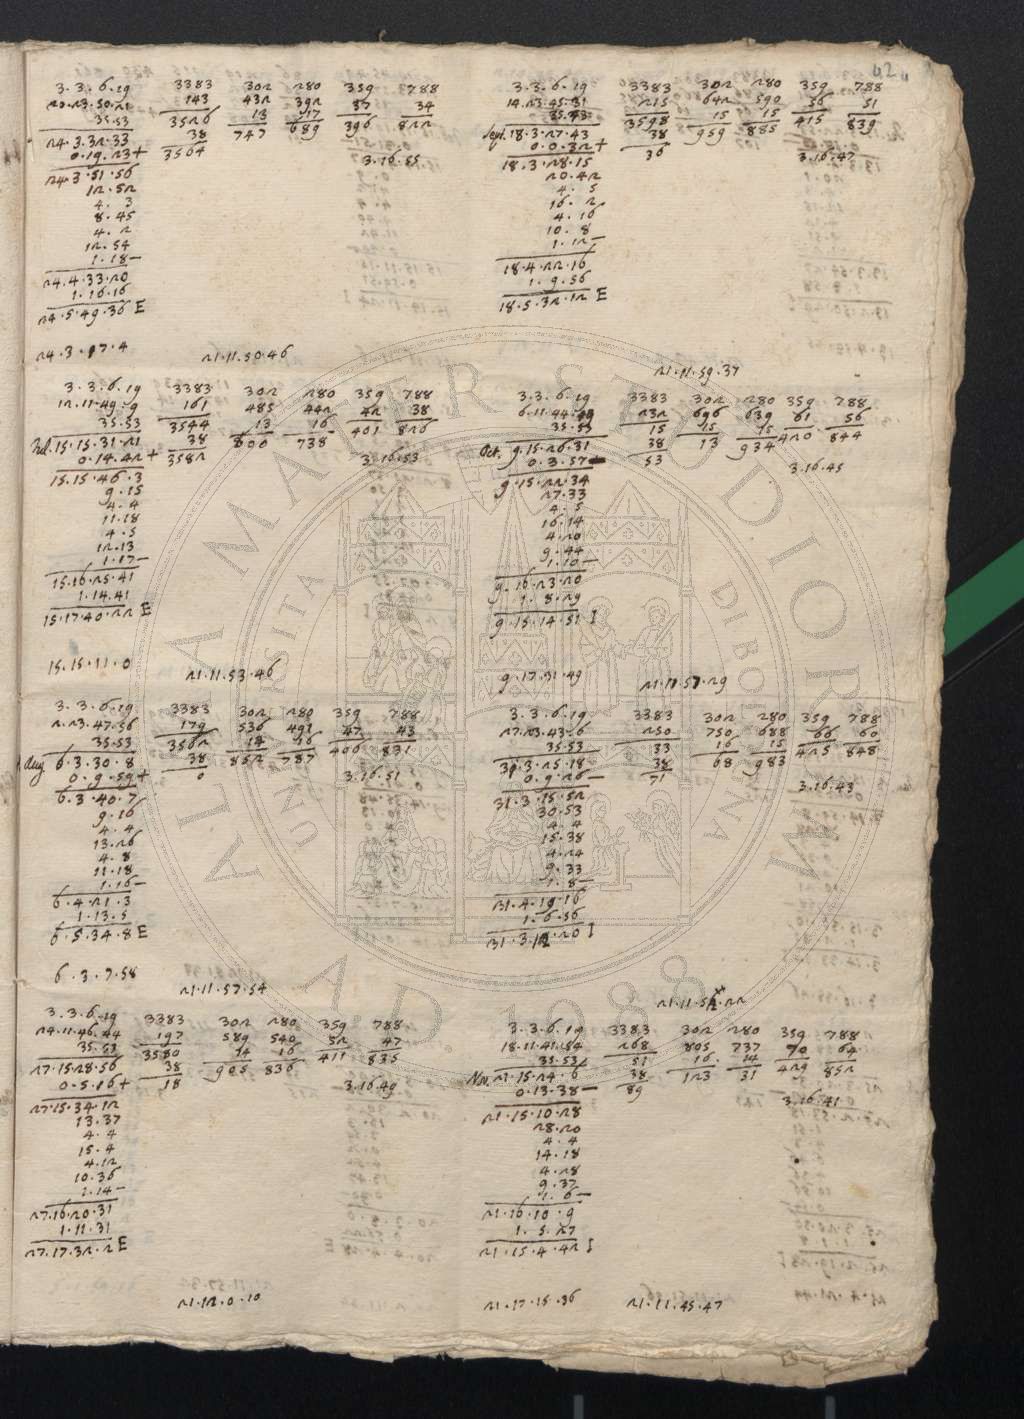 42
3.3.6.19 3383 302 280 359 788
20.23.50.21 143 432 392 37 34
35.53 3526 13 17 396 822
24.3.32.33 38 747 689
0.19.23+ 3564 3.16.55
24.3.51.56
12.52
4.3
8.45
4.2
12.54
1.18-
24.4.33.20
1.16.16
24.5.49.36 E
24.3.17.4 21.11.50.46
3.3.6.19 3383 302 280 359 788
12.11.49.9 161 485 442 42 38
35.53 3544 13 16 401 826
Jul. 15.15.31.21 38 800 738
0.14.42+ 3582 3.16.53
15.15.46.3
9.15
4.4
11.18
4.5
12.13
1.17-
15.16.25.41
1.14.41
15.17.40.22 E
15.15.11.0 21.11.53.46
3.3.6.19 3383 302 280 359 788
2.23.47.56 179 536 491 47 43
35.53 3562 14 16 406 831
Aug. 6.3.30.8 38 852 787
0.9.59+ 0 3.16.51
6.3.40.7
9.16
4.4
13.26
4.8
11.18
1.16-
6.4.21.3
1.13.5
6.5.34.8 E
6.3.7.58 21.11.57.54
3.3.6.19 3383 302 280 359 788
24.11.46.44 197 589 540 52 47
35.53 3580 14 16 411 835
27.15.28.56 38 905 836
0.5.16+ 18 3.16.49
27.15.34.12
13.37
4.4
15.4
4.12
10.36
1.14-
27.16.20.31
1.11.31
27.17.32.2 E
21.12.0.10
3.3.6.19 3383 302 280 359 788
14.23.45.31 215 642 590 56 51
35.53 3598 15 15 415 839
Sept. 18.3.27.43 38 959 885
0.0.32+ 36 3.16.47
18.3.28.15
20.42
4.5
16.2
4.16
10.8
1.12-
18.4.22.16
1.9.56
18.5.32.12 E
21.11.59.37
3.3.6.19 3383 302 280 359 788
6.11.44.19 232 696 639 61 56
35.53 15 15 15 420 844
Oct. 9.15.26.31 38 13 934
0.3.57- 53 3.16.45
9.15.22.34
27.33
4.5
16.14
4.20
9.44
1.10-
9.16.23.20
1.8.29
9.15.14.51 I
9.17.31.49 21.11.57.29
3.3.6.19 3383 302 280 359 788
27.23.43.6 250 750 688 66 60
35.53 33 16 15 425 848
31.3.25.18 38 68 983
0.9.26- 71 3.16.43
31.3.15.52
30.53
4.4
15.38
4.24
9.33
1.8-
31.4.19.16
1.6.56
31.3.12.20 I
21.11.52.22
3.3.6.19 3383 302 280 359 788
18.11.41.54 268 805 737 70 64
35.53 51 16 14 429 852
Nov. 21.15.24.6 38 123 31
0.13.38- 89 3.16.41
21.15.10.28
28.20
4.4
14.18
4.28
9.37
1.6-
21.16.10.9
1.5.27
21.15.4.42 I
21.17.15.36 21.11.45.47
ALMA MATER STUDIORUM
UNIVERSITÀ DI BOLOGNA
A.D. 1088